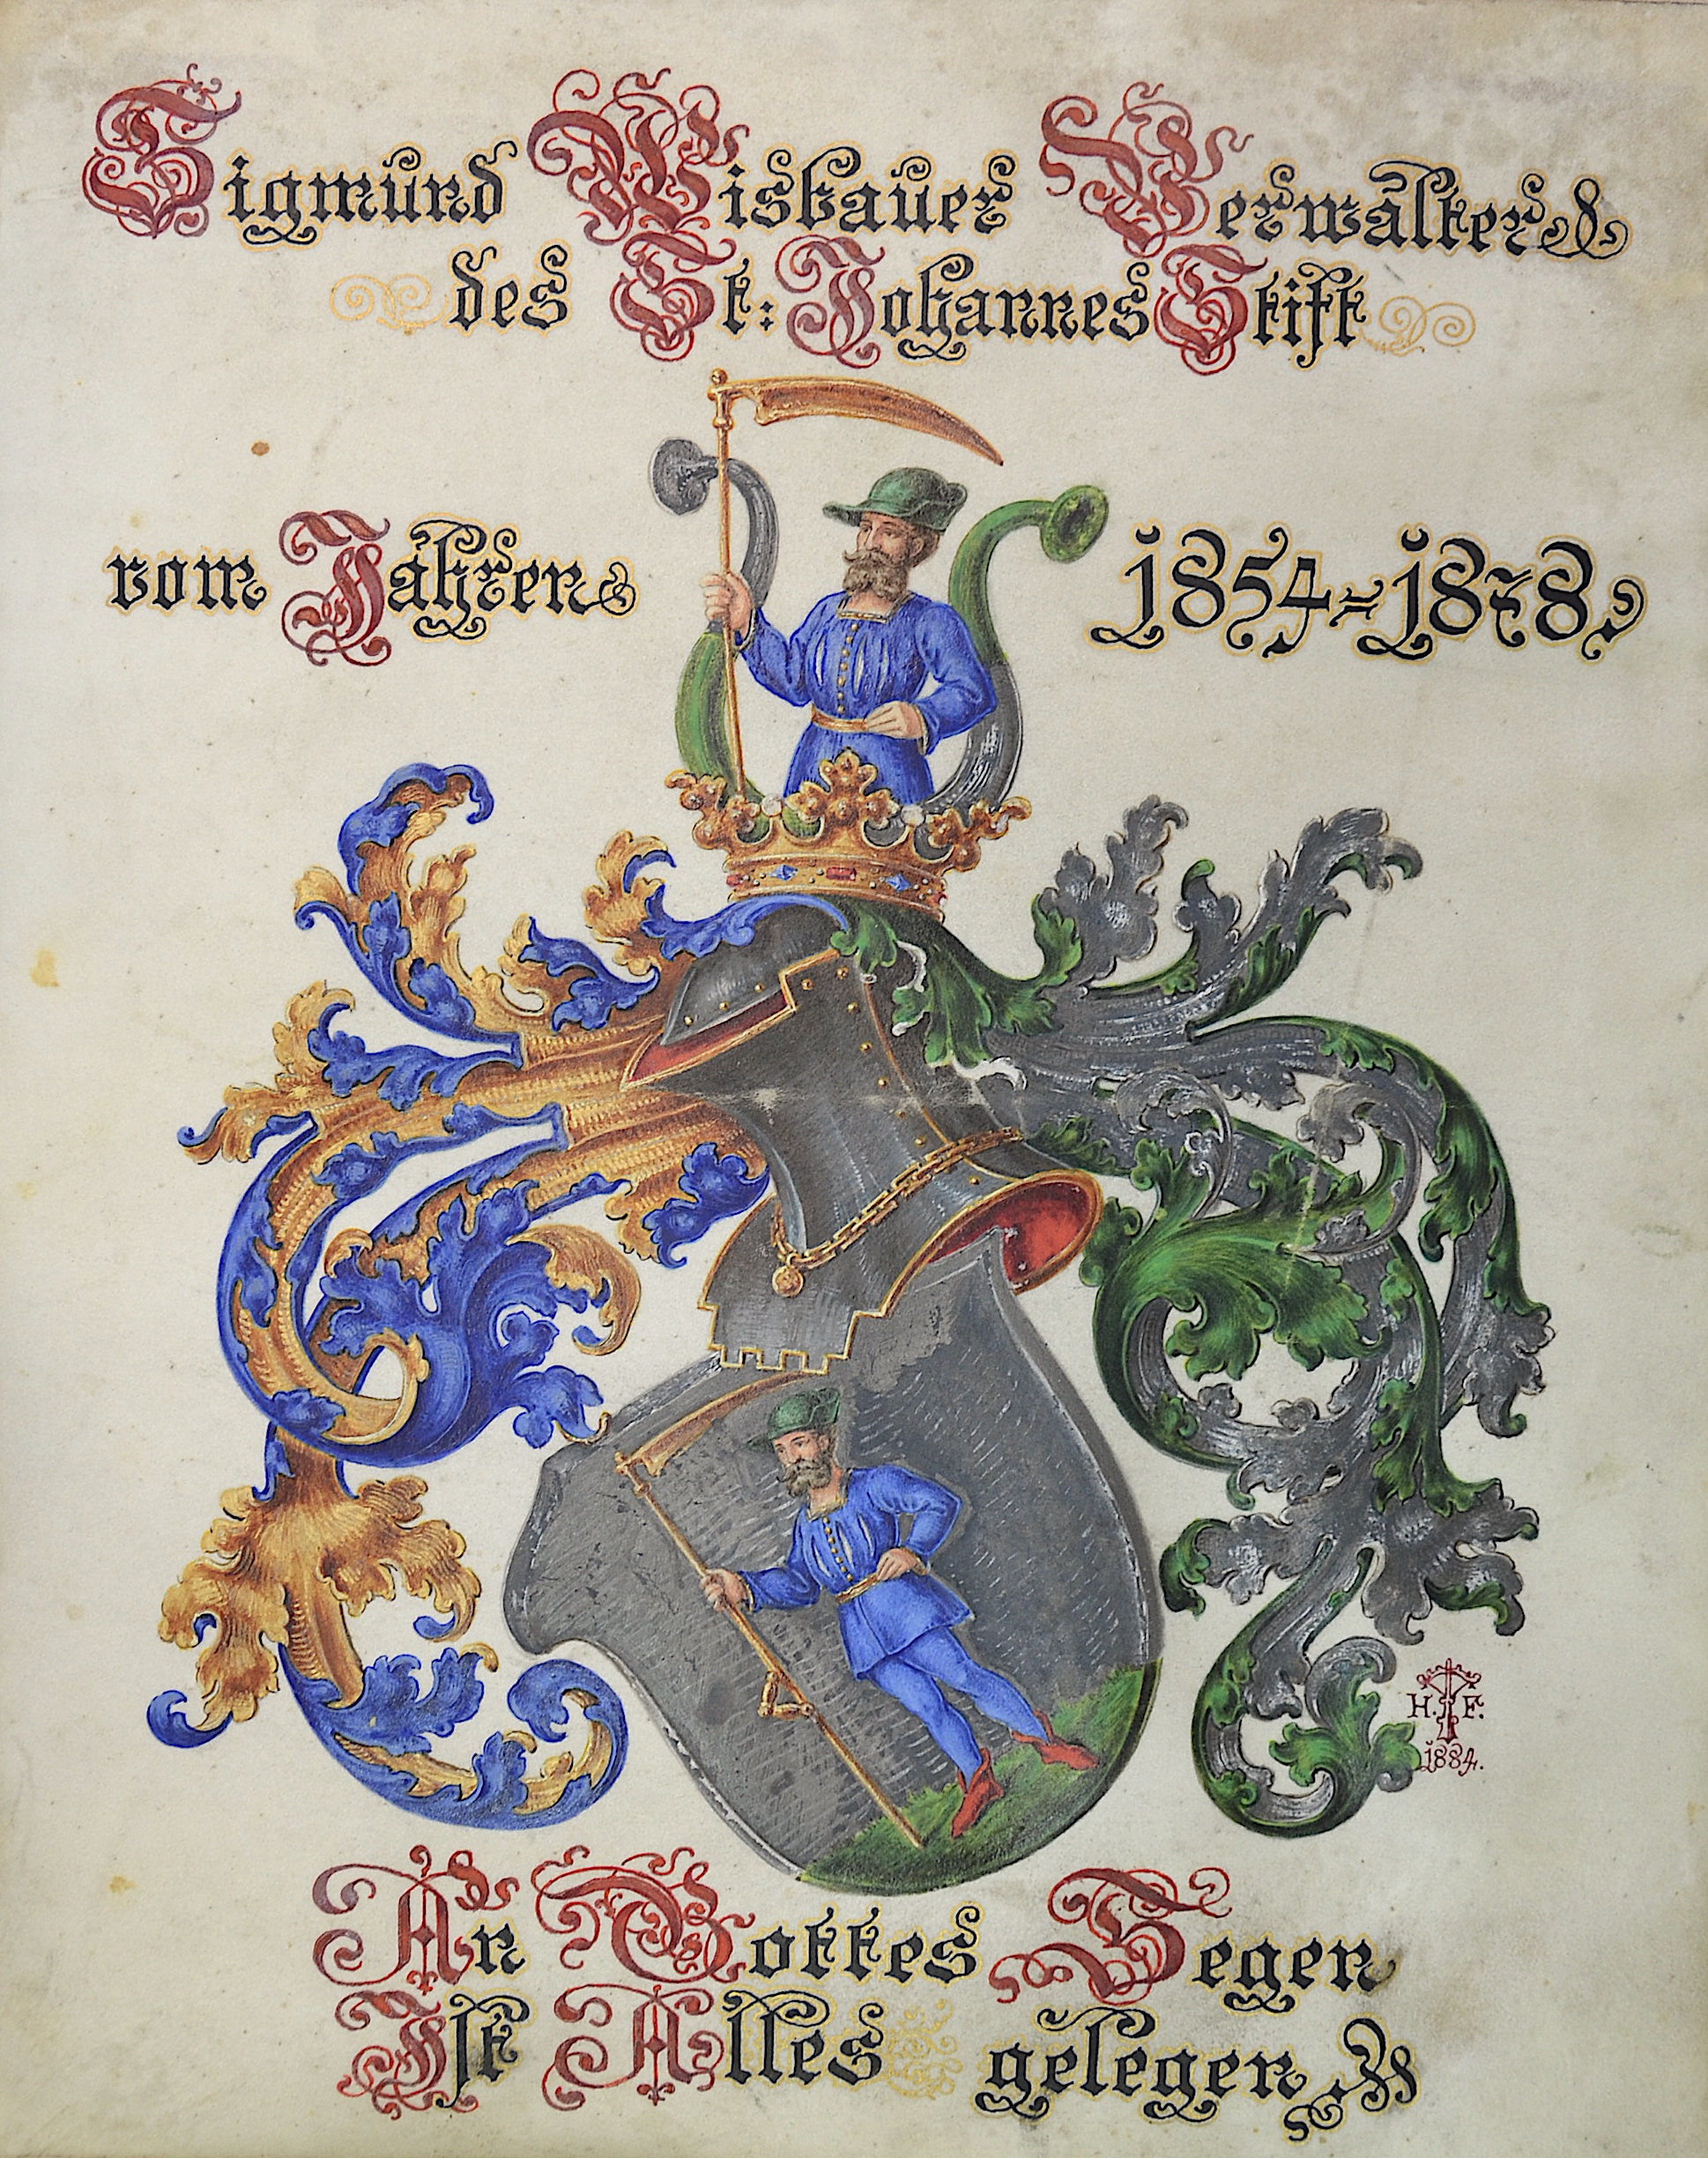 Sigmund Wisbauer Verwalter
des St: Johannes Stift
vom Jahren 1854-1878
H. F.
1884.
An Gottes Segen
Ist Alles gelegen